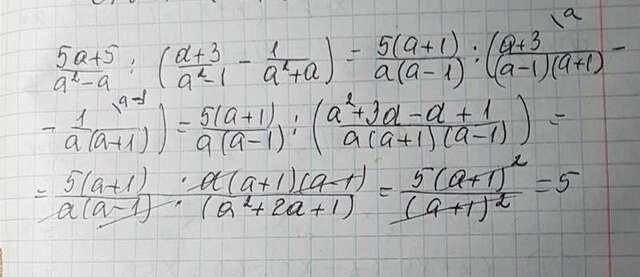 (5a+5)/(a²-a) : ((a+3)/(a²-1) - 1/(a²+a)) = 5(a+1)/(a(a-1)) : ((a+3)\a/((a-1)(a+1)) -
- 1\a-1/(a(a+1))) = 5(a+1)/(a(a-1)) : ((a²+3a-a+1)/(a(a+1)(a-1))) =
= 5(a+1)/(a(a-1)) · a(a+1)(a-1)/(a²+2a+1) = 5(a+1)²/(a+1)² = 5